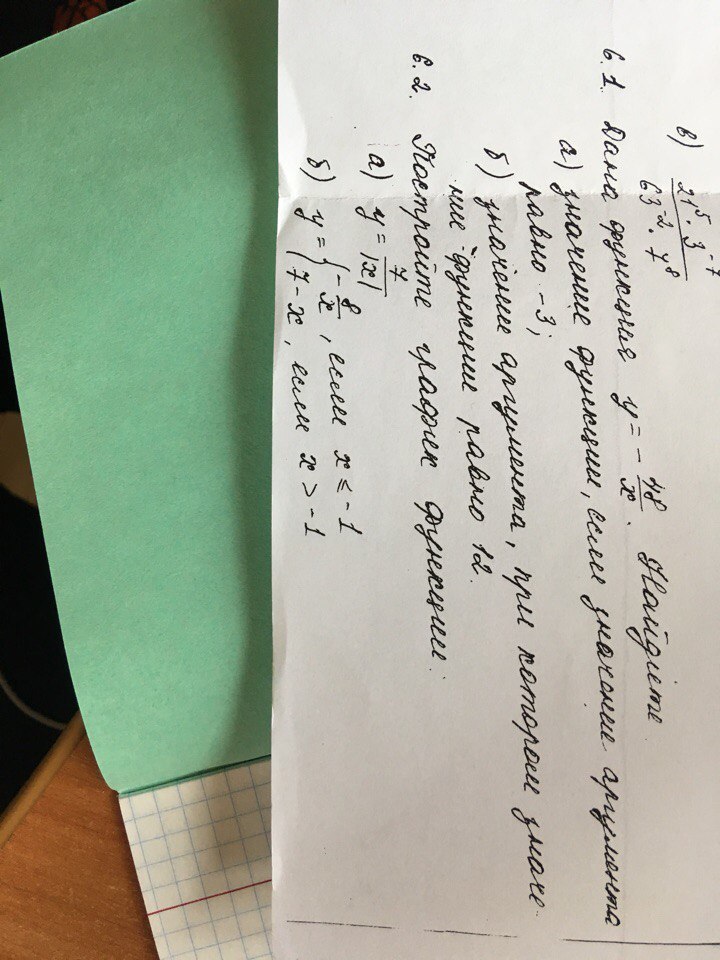 в) \frac{21^5 \cdot 3^{-7}}{63^{-2} \cdot 7^8}
6.1. Дана функция y = -\frac{48}{x}. Найдите
а) значение функции, если значение аргумента
равно -3;
б) значение аргумента, при котором значе-
ние функции равно 12.
6.2. Постройте график функции:
а) y = \frac{7}{|x|}
б) y = { -\frac{8}{x}, если x ≤ -1
7 - x, если x > -1